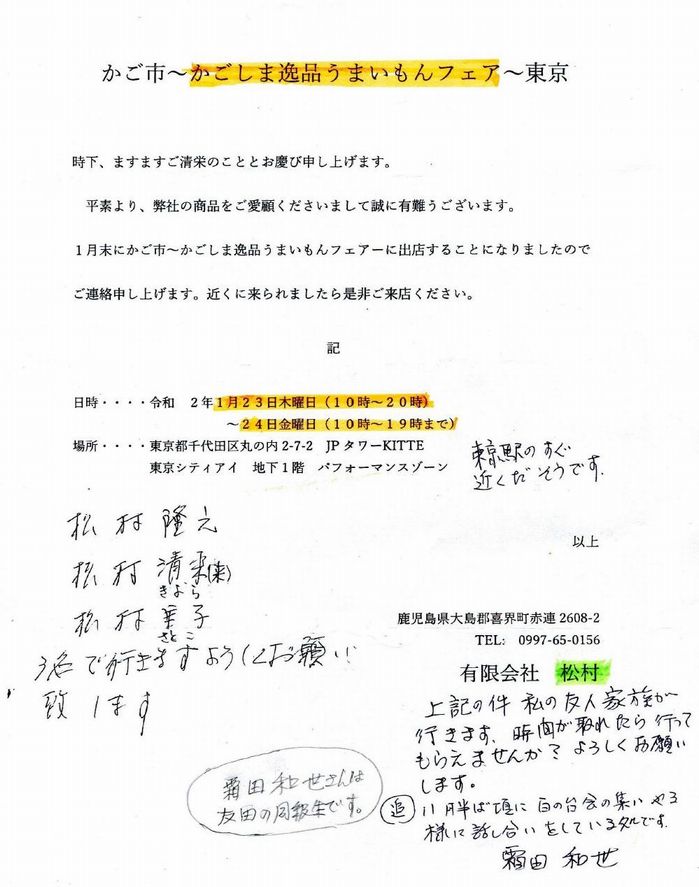 かご市～かごしま逸品うまいもんフェア～東京
時下、ますますご清栄のこととお慶び申し上げます。
平素より、弊社の商品をご愛顧くださいまして誠に有難うございます。
１月末にかご市～かごしま逸品うまいもんフェアーに出店することになりましたので
ご連絡申し上げます。近くに来られましたら是非ご来店ください。
記
日時・・・・令和　２年１月２３日木曜日（１０時～２０時）
～２４日金曜日（１０時～１９時まで）
場所・・・・東京都千代田区丸の内 2-7-2　JP タワーKITTE
東京シティアイ　地下１階　パフォーマンスゾーン
東京駅のすぐ
近くだそうです.
以上
松村 隆之
松村 清来(来)
きよら
松村 里子
さとこ
3名で行きますよろしくお願い
致します
鹿児島県大島郡喜界町赤連 2608-2
TEL:　0997-65-0156
有限会社　松村
上記の件 私の友人家族が
行きます、時間が取れたら行って
もらえませんか? よろしくお願い
します。
追 11月半ば頃に 百の台会の集い やる
様に話し合いをしている処です.
霜田 和世
霜田和世さんは
友田の同級生です。